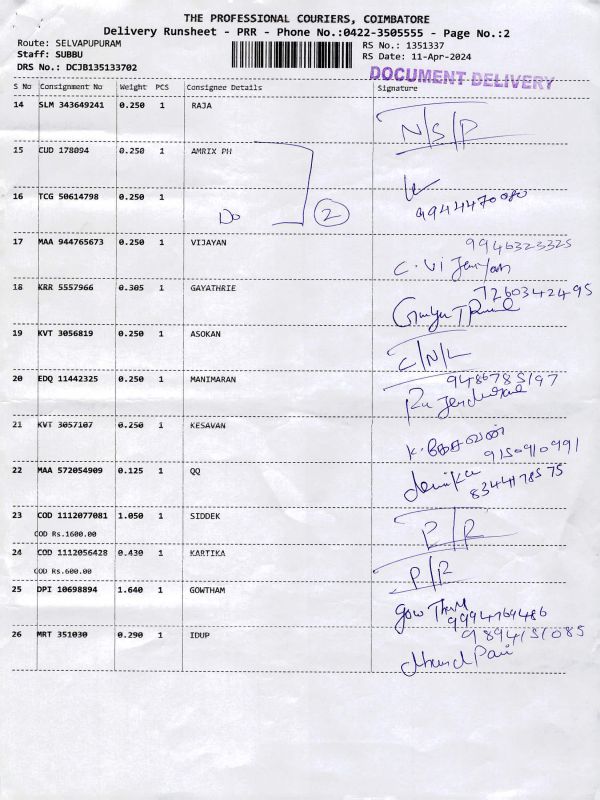 THE PROFESSIONAL COURIERS, COIMBATORE
Delivery Runsheet - PRR - Phone No.:0422-3505555 - Page No.:2
Route: SELVAPUPURAM RS No.: 1351337
Staff: SUBBU RS Date: 11-Apr-2024
DRS No.: DCJB135133702
DOCUMENT DELIVERY
S No Consignment No Weight PCS Consignee Details Signature
14 SLM 343649241 0.250 1 RAJA
N/S/P
15 CUD 178094 0.250 1 AMRIX PH
16 TCG 50614798 0.250 1
Do 2
17 MAA 944765673 0.250 1 VIJAYAN
9946323325
C. Vijayan
18 KRR 5557966 0.305 1 GAYATHRIE
7260342495
19 KVT 3056819 0.250 1 ASOKAN
C/N/L
20 EDQ 11442325 0.250 1 MANIMARAN
9486785197
21 KVT 3057107 0.250 1 KESAVAN
K. கேசவன்
9150910991
22 MAA 572054909 0.125 1 QQ
8344178575
23 COD 1112077081 1.050 1 SIDDEK
COD Rs.1600.00
P/R
24 COD 1112056428 0.430 1 KARTIKA
COD Rs.600.00
P/R
25 DPI 10698894 1.640 1 GOWTHAM
Gowtham
9994769486
26 MRT 351030 0.290 1 IDUP
9894151085